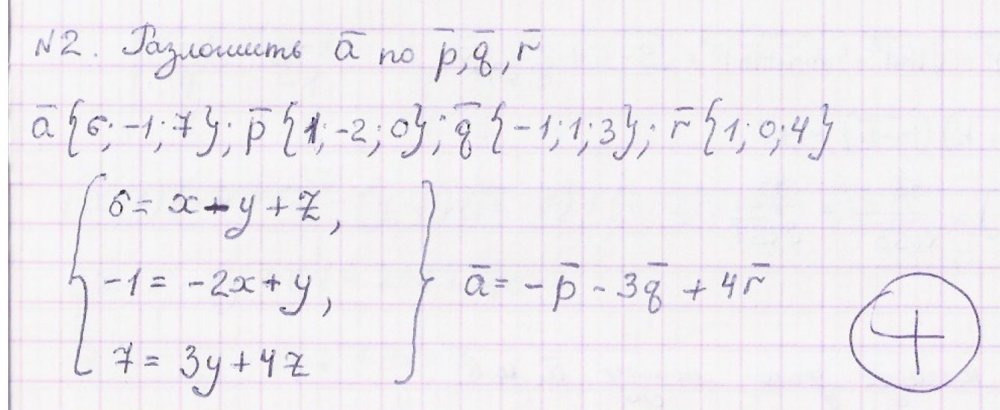 №2. Разложить ā по p̄, q̄, r̄
ā{6; -1; 7}; p̄{1; -2; 0}; q̄{-1; 1; 3}; r̄{1; 0; 4}
6 = x - y + z,
-1 = -2x + y,
7 = 3y + 4z
ā = -p̄ - 3q̄ + 4r̄